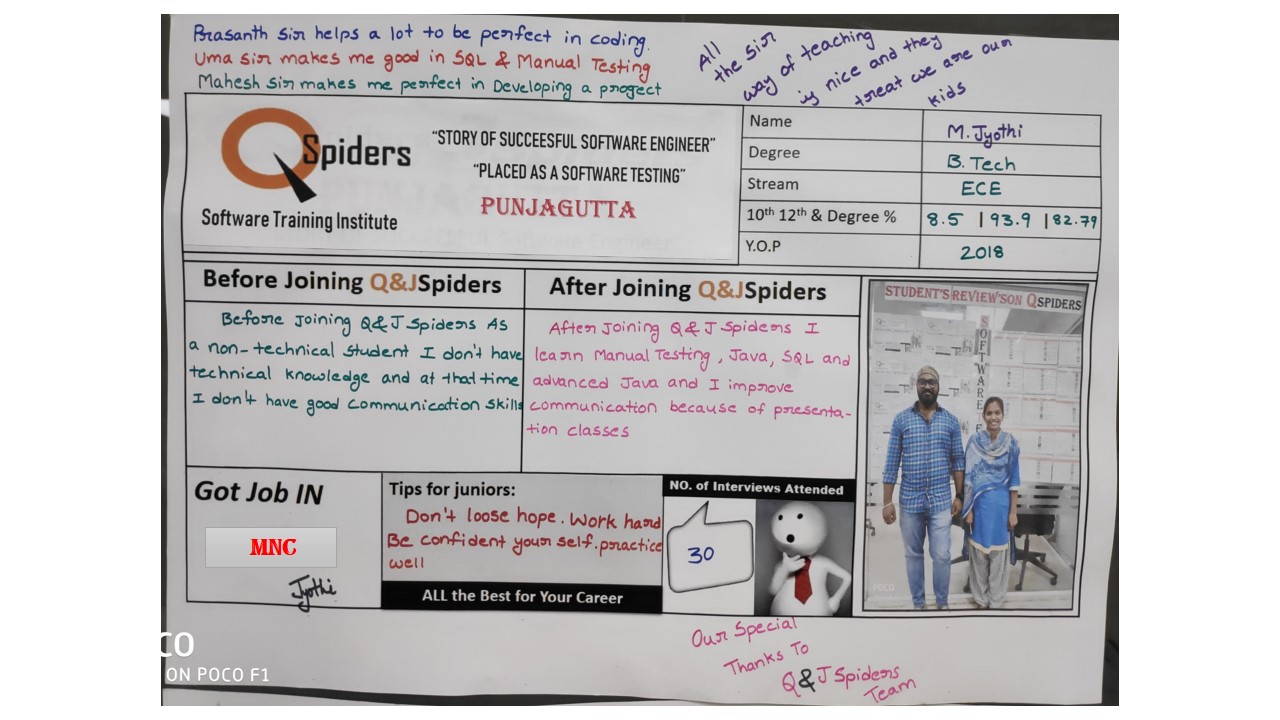 Prasanth sir helps a lot to be perfect in coding.
Uma sir makes me good in SQL & Manual Testing
Mahesh sir makes me perfect in Developing a progect
All
the sir
way of teaching
is nice and they
treat we are our
kids
QSpiders
Software Training Institute
“STORY OF SUCCEESFUL SOFTWARE ENGINEER”
“PLACED AS A SOFTWARE TESTING”
PUNJAGUTTA
Name M. Jyothi
Degree B. Tech
Stream ECE
10th 12th & Degree % 8.5 | 93.9 | 82.79
Y.O.P 2018
Before Joining Q&JSpiders
Before Joining Q&J Spiders As
a non-technical student I don't have
technical knowledge and at that time
I don't have good communication skills
After Joining Q&JSpiders
After Joining Q&J Spiders I
learn Manual Testing, Java, SQL and
advanced Java and I improve
communication because of presenta-
tion classes
STUDENT'S REVIEW'S ON QSPIDERS
SOFTWARE
POCO
Got Job IN
MNC
Jyothi
Tips for juniors:
Don't loose hope. Work hard
Be confident your self. practice
well
ALL the Best for Your Career
NO. of Interviews Attended
30
Our Special
Thanks To
Q&J Spiders
Team
CO
ON POCO F1